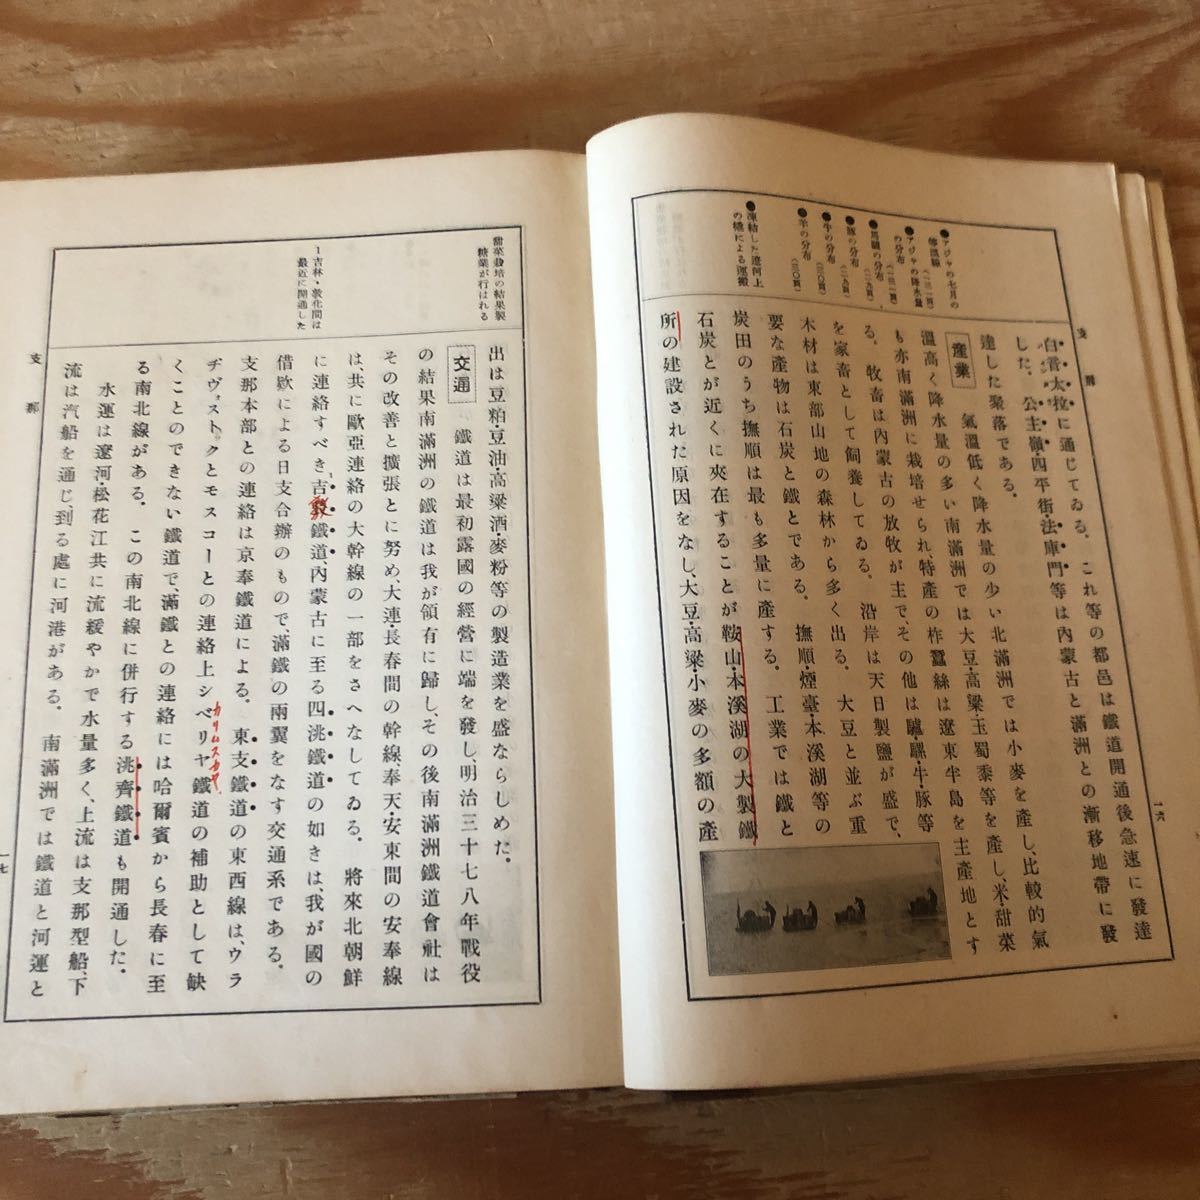 支那
一六
●アジヤの七月の
等温線(一三一頁)
●アジヤの降水量
の分布(一三一頁)
●馬驢の分布
(一二九頁)
●豚の分布
(一二九頁)
●牛の分布
(一三〇頁)
●羊の分布
(一三〇頁)
●凍結した遼河上
の橇による運搬
白音太拉に通じてゐる。これ等の都邑は鐵道開通後急速に發達
した。公主嶺・四平街・法庫門等は內蒙古と滿洲との漸移地帶に發
達した聚落である。
産業 氣溫低く降水量の少い北滿洲では小麥を產し、比較的氣
溫高く降水量の多い南滿洲では大豆・高梁・玉蜀黍等を產し、米・甜菜
も亦南滿洲に栽培せられ、特產の柞蠶絲は遼東半島を主產地とす
る。牧畜は內蒙古の放牧が主で、その他は驢・騾・牛・豚等
を家畜として飼養してゐる。沿岸は天日製鹽が盛で、
木材は東部山地の森林から多く出る。大豆と並ぶ重
要な產物は石炭と鐵とである。撫順・煙臺・本溪湖等の
炭田のうち撫順は最も多量に產する。工業では鐵と
石炭とが近くに夾在することが鞍山・本溪湖の大製鐵
所の建設された原因をなし、大豆・高梁・小麥の多額の產
甜菜栽培の結果製
糖業が行はれる
1吉林・敦化間は
最近に開通した
出は豆粕・豆油・高梁酒・麥粉等の製造業を盛ならしめた。
交通 鐵道は最初露國の經營に端を發し、明治三十七八年戰役
の結果南滿洲の鐵道は我が領有に歸し、その後南滿洲鐵道會社は
その改善と擴張とに努め、大連・長春間の幹線、奉天・安東間の安奉線
は、共に歐亞連絡の大幹線の一部をさへなしてゐる。將來北朝鮮
に連絡すべき吉敦鐵道、內蒙古に至る四洮鐵道の如きは、我が國の
借款による日支合辦のもので滿鐵の兩翼をなす交通系である。
支那本部との連絡は京奉鐵道による。東支鐵道の東西線は、ウラ
ヂヴォストックとモスコーとの連絡上シベリヤ鐵道の補助として缺
くことのできない鐵道で、滿鐵との連絡には哈爾賓から長春に至
る南北線がある。この南北線に併行する洮齊鐵道も開通した。
水運は遼河・松花江共に流緩やかで水量多く、上流は支那型船、下
流は汽船を通じ、到る處に河港がある。南滿洲では鐵道と河運と
支那
一七